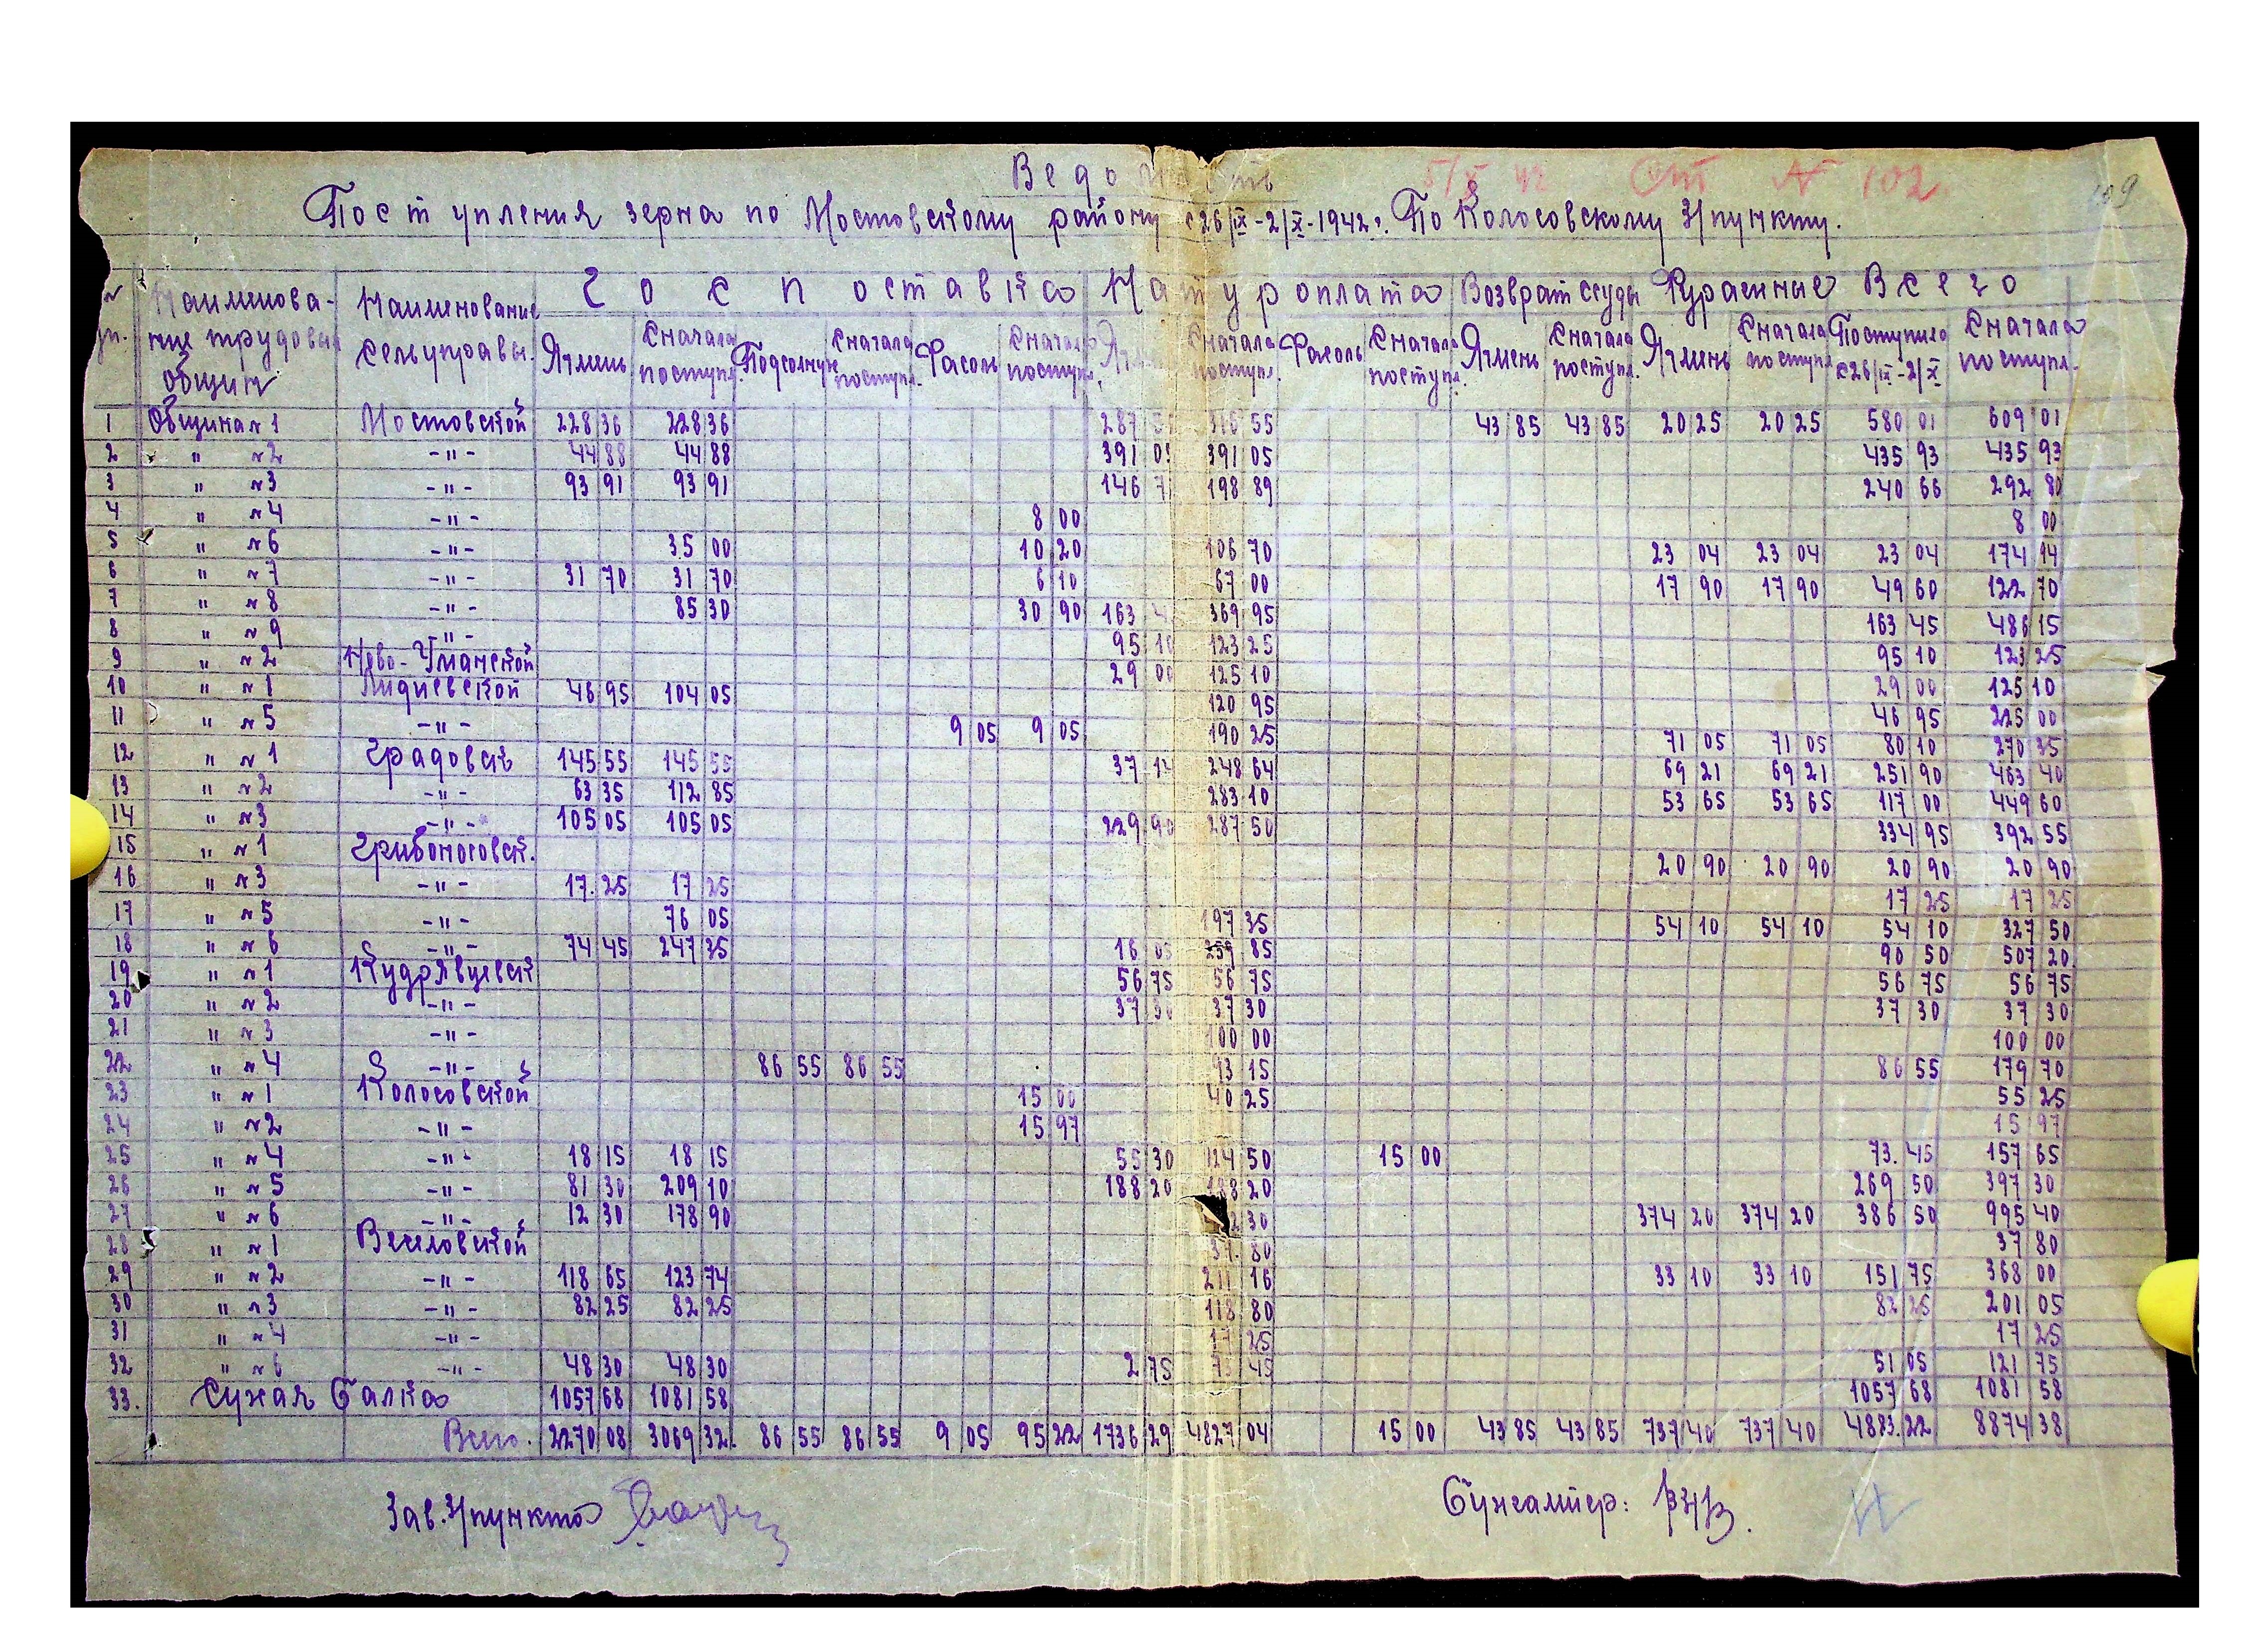 Ведомость
5/X 42 От № 102.
109
Поступления зерна по Мостовскому району с 26/IX-2/X-1942г. По Колосовскому З/пункту.
№ п/п. Наименование трудовых общин Наименование сельуправы. Госпоставка Натуроплата Возврат ссуды Фуражные Всего
Ячмень Сначала поступл. Подсолнух Сначала поступл. Фасоль Сначала поступл. Ячмень Сначала поступл. Фасоль Сначала поступл. Ячмень Сначала поступл. Ячмень Сначала поступл. Поступило с 26/IX-2/X Сначала поступл.
1 Община №1 Мостовской 228 36 228 36 287 55 43 85 43 85 20 25 20 25 580 01 609 01
2 " №2 -"- 44 88 44 88 391 05 391 05 435 93 435 93
3 " №3 -"- 93 91 93 91 146 7 198 89 240 66 292 80
4 " №4 -"- 8 00 8 00
5 " №6 -"- 35 00 10 20 106 70 23 04 23 04 23 04 174 14
6 " №7 -"- 31 70 31 70 6 10 67 00 17 90 17 90 49 60 122 70
7 " №8 -"- 85 30 30 90 163 4 369 95 163 45 486 15
8 " №9 -"- 95 10 123 25 95 10 123 25
9 " №2 Ново-Уманской 29 00 125 10 29 00 125 10
10 " №1 Лидиевской 46 95 104 05 120 95 46 95 225 00
11 " №5 -"- 9 05 9 05 190 25 71 05 71 05 80 10 270 35
12 " №1 Градовск 145 55 145 55 37 14 248 64 69 21 69 21 251 90 463 40
13 " №2 -"- 63 35 112 85 283 10 53 65 53 65 117 00 449 60
14 " №3 -"- 105 05 105 05 229 90 287 50 334 95 392 55
15 " №1 Грибоносовск. 20 90 20 90 20 90 20 90
16 " №3 -"- 17.25 17 25 17 25 17 25
17 " №5 -"- 76 05 197 35 54 10 54 10 54 10 327 50
18 " №6 -"- 74 45 247 35 16 05 259 85 90 50 507 20
19 " №1 Кудрявцевск 56 75 56 75 56 75 56 75
20 " №2 -"- 37 30 37 30 37 30 37 30
21 " №3 -"- 100 00 100 00
22 " №4 -"- 86 55 86 55 93 15 86 55 179 70
23 " №1 Колосовской 15 00 40 25 55 25
24 " №2 -"- 15 97 15 97
25 " №4 -"- 18 15 18 15 55 30 124 50 15 00 73.45 157 65
26 " №5 -"- 81 30 209 10 188 20 188 20 269 50 397 30
27 " №6 -"- 12 30 178 90 2 30 374 20 374 20 386 50 995 40
28 " №1 Веселовской 37.80 37 80
29 " №2 -"- 118 65 123 74 211 16 33 10 33 10 151 75 368 00
30 " №3 -"- 82 25 82 25 118 80 82 25 201 05
31 " №4 -"- 17 25 17 25
32 " №6 -"- 48 30 48 30 2 75 73 45 51 05 121 75
33. Сухая Балка 1057 68 1081 58 1057 68 1081 58
Всего. 2270 08 3069 32. 86 55 86 55 9 05 95 22 1736 29 4827 04 15 00 43 85 43 85 737 40 737 40 4883.22 8874 38
Зав. З/пункта Бухгалтер: